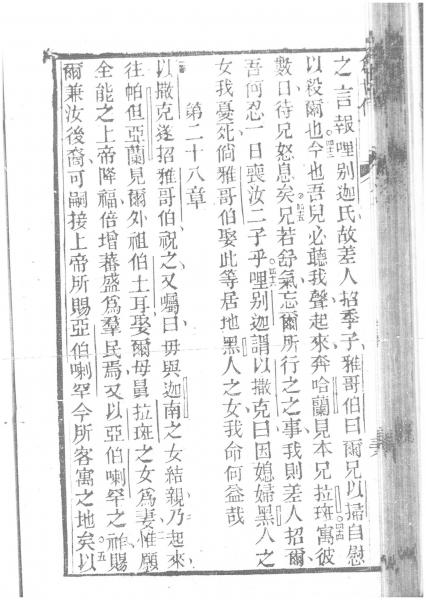 之言報哩別迦氏故差人招季子雅哥伯曰爾兄以掃自慰
以殺爾也今也吾兒必聽我聲起來奔哈蘭見本兄拉班寓彼
數日待兄怒息矣兄若舒氣忘爾所行之之事我則差人招爾
吾何忍一日喪汝二子乎哩別迦謂以撒克曰因媳婦黑人之
女我憂死倘雅哥伯娶此等居地黑人之女我命何益哉
第二十八章
以撒克遂招雅哥伯祝之又囑曰毋與迦南之女結親乃起來
往帕但亞蘭見爾外祖伯土耳娶爾母舅拉班之女為妻惟願
全能之上帝降福倍增蕃盛為羣民焉又以亞伯喇罕之福賜
爾兼汝後裔可嗣接上帝所賜亞伯喇罕今所客寓之地矣以